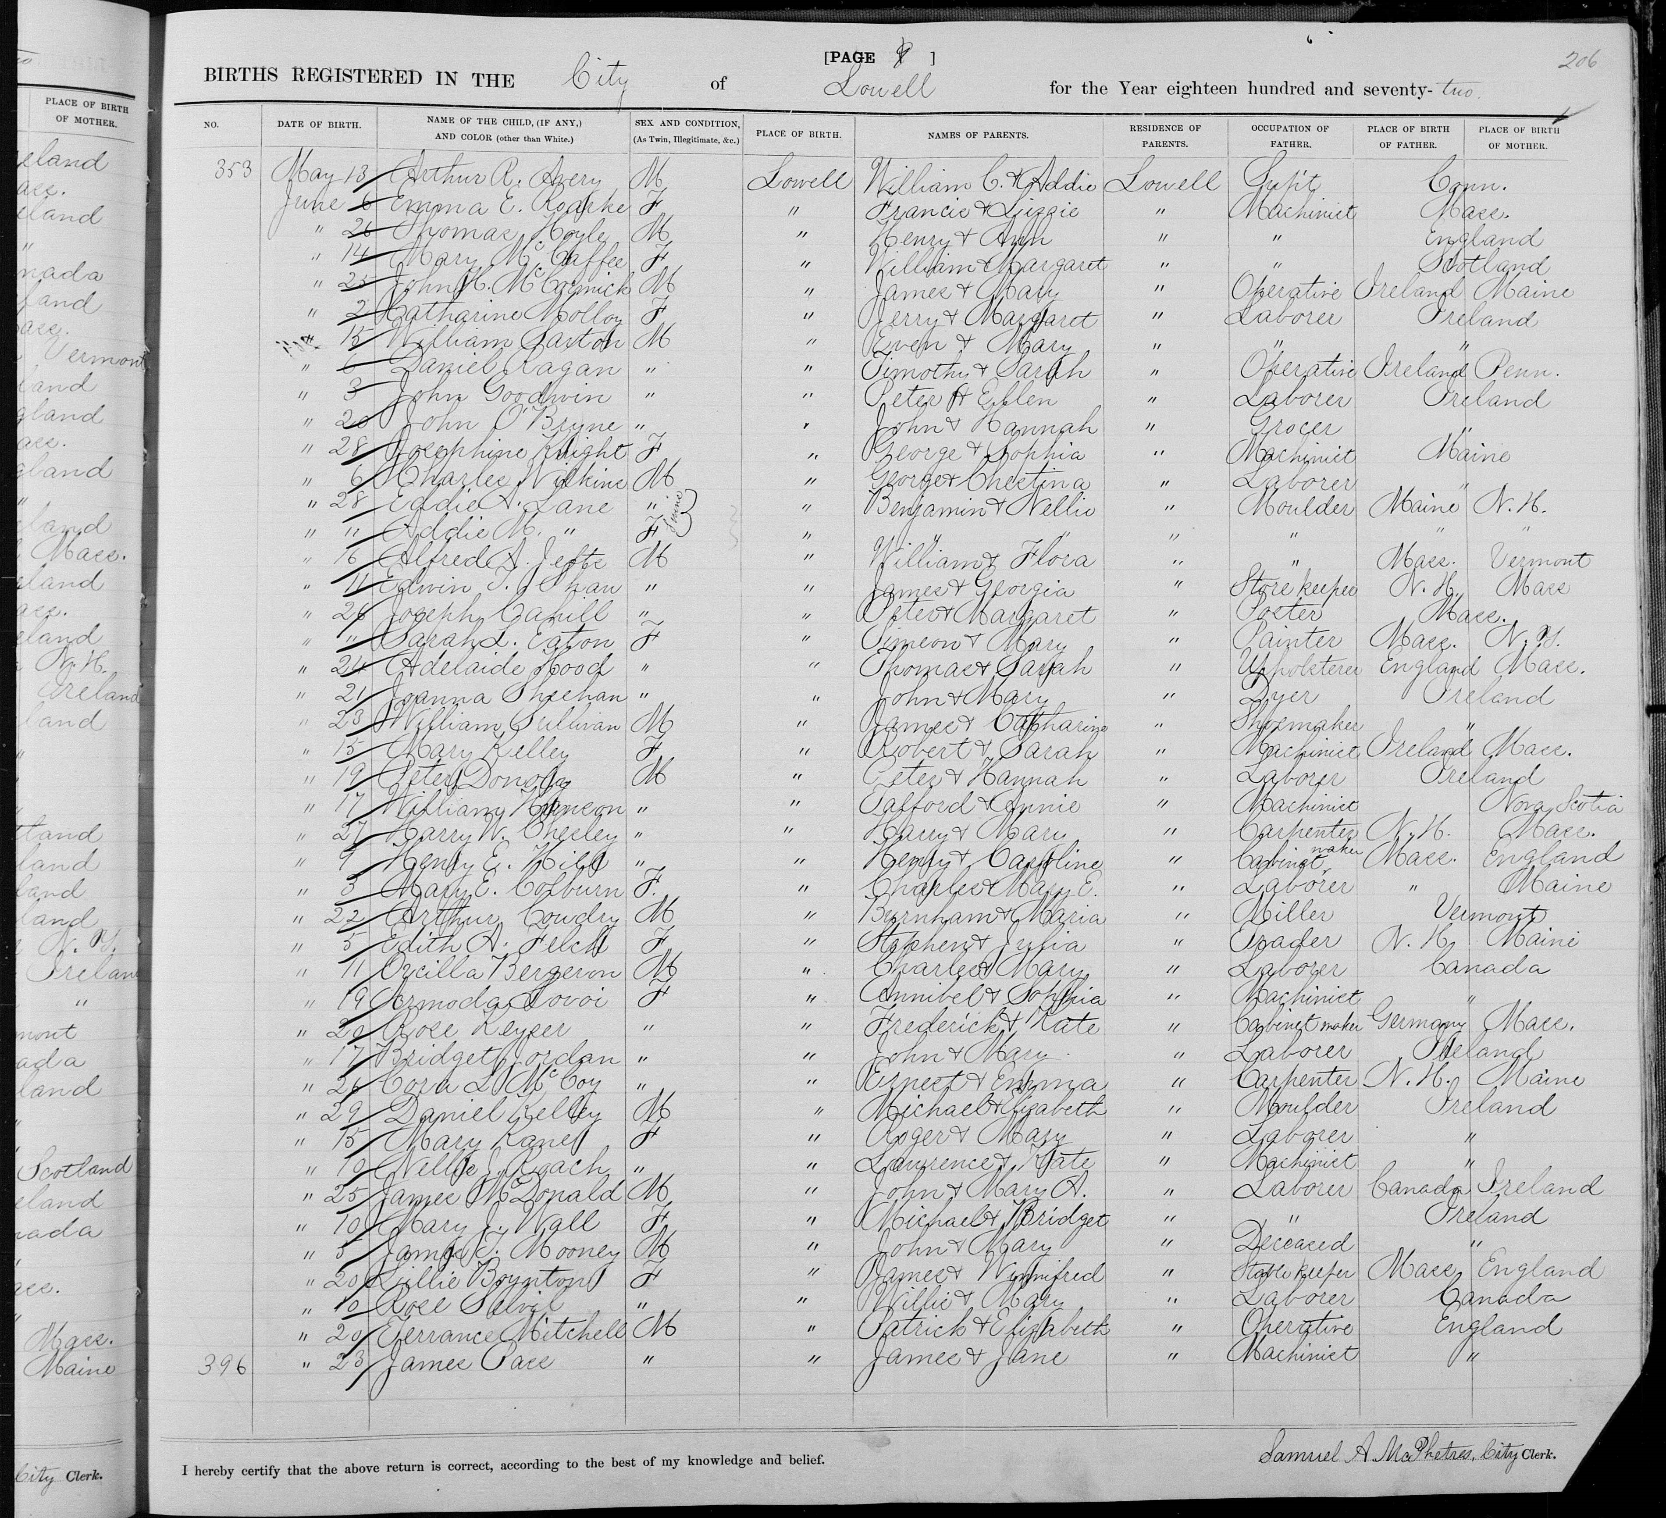 206
[PAGE 8 ]
BIRTHS REGISTERED IN THE City of Lowell for the Year eighteen hundred and seventy-two.
NO. DATE OF BIRTH. NAME OF THE CHILD, (IF ANY,) AND COLOR (other than White.) SEX AND CONDITION, (As Twin, Illegitimate, &c.) PLACE OF BIRTH. NAMES OF PARENTS. RESIDENCE OF PARENTS. OCCUPATION OF FATHER. PLACE OF BIRTH OF FATHER. PLACE OF BIRTH OF MOTHER.
353 May 13 Arthur R. Avery M Lowell William C. & Addie Lowell Sup't Conn.
June 6 Emma E. Roarke F " Francis & Lizzie " Machinist Mass.
" 26 Thomas Hoyle M " Henry & Ann " " England
" 14 Mary McCaffee F " William & Margaret " " Scotland
" 25 John H. McCormick M " James & Mary " Operative Ireland Maine
" 2 Catharine Molloy F " Jerry & Margaret " Laborer Ireland
15 William Saxton M " Owen & Mary " " "
" 6 Daniel Ragan " " Timothy & Sarah " Operative Ireland Penn.
" 3 John Goodwin " " Peter & Ellen " Laborer Ireland
" 20 John O'Bryne " " John & Hannah " Grocer "
" 28 Josephine Knight F " George & Sophia " Machinist Maine
" 6 Charles Wilkins M " George & Chestina " Laborer "
" 28 Eddie A. Lane " " Benjamin & Nellie " Moulder Maine N. H.
" " Addie M. " F " " " " " " "
" 16 Alfred A. Jefts M " William & Flora " " Mass. Vermont
" 11 Edwin T. Shaw " " James & Georgia " Store keeper N. H. Mass
" 26 Joseph Cahill " " Peter & Margaret " Mass.
" " Sarah L. Eaton F " Simeon & Mary " Painter Mass. N. Y.
" 24 Adelaide Hood " " Thomas & Sarah " Upholsterer England Mass.
" 21 Joanna Sheehan " " John & Mary " Dyer Ireland
" 23 William Sullivan M " James & Catharine " Shoemaker "
" 15 Mary Kelley F " Robert & Sarah " Machinist Ireland Mass.
" 19 Peter M " Peter & Hannah " Laborer Ireland
" 17 William " " Safford & Annie " Machinist Nova Scotia
" 27 Harry W. Chesley " " Harry & Mary " Carpenter N. H. Mass.
" 9 Henry E. Hill " " Henry & Caroline " Cabinet maker Mass. England
" 3 Mary E. Colburn F. " Charles & Mary E. " Laborer " Maine
" 22 Arthur Cowdry M " Burnham & Maria " Miller Vermont
" 5 Edith A. Felch F " Stephen & Julia " Trader N. H. Maine
" 11 Orcilla Bergeron M " Charles & Mary " Laborer Canada
" 19 Armoda F " Annibel & Sophia " Machinist "
" 29 Rose Keyser " " Frederick & Kate " Cabinet maker Germany Mass.
" 17 Bridget Jordan " " John & Mary " Laborer Ireland
" 26 Cora L. McCoy " " Ernest & Emma " Carpenter N. H. Maine
" 29 Daniel Kelley M " Michael & Elizabeth " Moulder Ireland
" 15 Mary Kane F " Roger & Mary " Laborer "
" 19 Nellie J. Roach " " Lawrence & Kate " Machinist "
" 25 James McDonald M " John & Mary A. " Laborer Canada Ireland
" 10 Mary J. Wall F " Michael & Bridget " " Ireland
" 5 James T. Mooney M " John & Mary " Deceased "
" 20 Lillie Boynton F " James & Winnifred " Stable keeper Mass. England
" 10 Rose " " Willie & Mary " Laborer Canada
" 20 Terrance Mitchell M " Patrick & Elizabeth " Operative England
396 " 23 James Pass " " James & Jane " Machinist "
I hereby certify that the above return is correct, according to the best of my knowledge and belief.
Samuel A. McPhetres, City Clerk.
PLACE OF BIRTH OF MOTHER.
Vermont
Mass.
N. H.
Ireland
N. Y.
Scotland
Mass.
Maine
City Clerk.